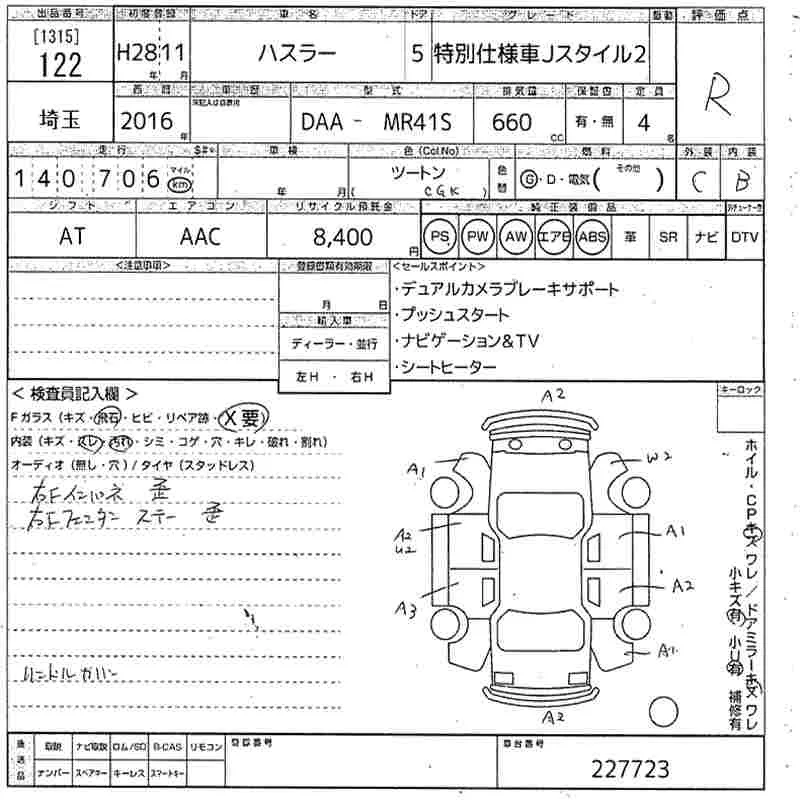 出品番号 初度登録 車名 ドア グレード 駆動 評価点
[1315]
122 H28 11 ハスラー 5 特別仕様車Jスタイル2 R
年 月
西暦 車歴 型式 排気量 保証書 定員
埼玉 2016年 DAA - MR41S 660cc 有・無 4名
走行 車検 色(Col.No) 燃料 外装 内装
140706 マイル km 年 月( ツートン CGK ) 色替 G・D・電気( その他 ) C B
シフト エアコン リサイクル預託金 純正装備品
AT AAC 8,400円 PS PW AW エアB ABS 革 SR ナビ DTV
<注意事項> 登録書類有効期限 <セールスポイント>
月 日
・デュアルカメラブレーキサポート
・プッシュスタート
輸入車
・ナビゲーション&TV
ディーラー・並行
・シートヒーター
左H・右H
キーロック
< 検査員記入欄 >
Fガラス (キズ・飛石・ヒビ・リペア跡・X要)
内装 (キズ・スレ・汚れ・シミ・コゲ・穴・キレ・破れ・割れ)
オーディオ (無し・穴) / タイヤ (スタッドレス)
右Fインパネ 歪
右Fフェンダーステー 歪
ハンドルカバー
A2
A1 W2
A2 U2 A1
A3 A2
A1
A2
ホイル・CPキズ ワレ / ドアミラーキズ ワレ
小キズ有 小U有 補修有
後送品 取説 ナビ取説 ロム/SD B-CAS リモコン 登録番号 車台番号
ナンバー スペアキー キーレス スマートキー 227723